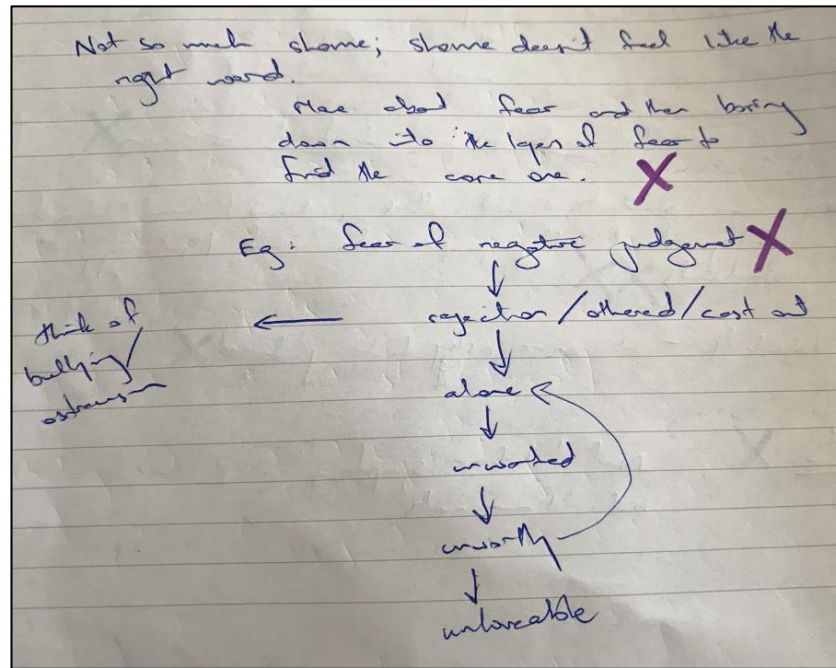 Not so much shame; shame doesn't feel like the
right word.
More about fear and then boring
down into the layers of fear to
find the core one. X
Eg: fear of negative judgement X
rejection / othered / cast out
think of
bullying/
ostracism
alone
unwanted
unworthy
unloveable